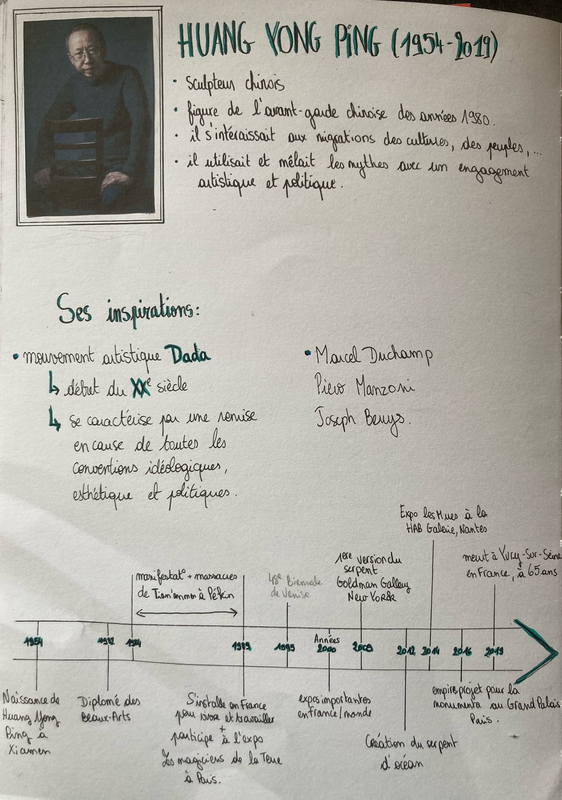 HUANG YONG PING (1954-2019)
• sculpteur chinois
• figure de l'avant-garde chinoise des années 1980.
• il s'intéraissait aux migrations des cultures, des peuples, ...
• il utilisait et mêlait les mythes avec un engagement
artistique et politique.
Ses inspirations:
• mouvement artistique Dada
↳ début du XXe siècle
↳ se caractérise par une remise
en cause de toutes les
conventions idéologiques,
esthétique et politiques.
• Marcel Duchamp
Piero Manzoni
Joseph Beuys.
Expo les Mues à la
HAB Galerie, Nantes
meurt à Yvry-Sur-Seine
en France, à 65 ans
1ère version du
serpent
Goldman Gallery
New York
48e Biennale
de Venise
manifestat° + massacres
de Tian'anmen à Pékin
1954
1982
1989
1999
Années
2000
2009
2012
2014
2016
2019
Naissance de
Huang Yong
Ping à
Xiamen
Diplomé des
Beaux-Arts
S'installe en France
pour vivre et travailler
+
participe à l'expo
Les magiciens de la Terre
à Paris.
expos importantes
en France/monde
Création du serpent
d'océan
empire projet pour la
monumenta au Grand Palais
Paris.